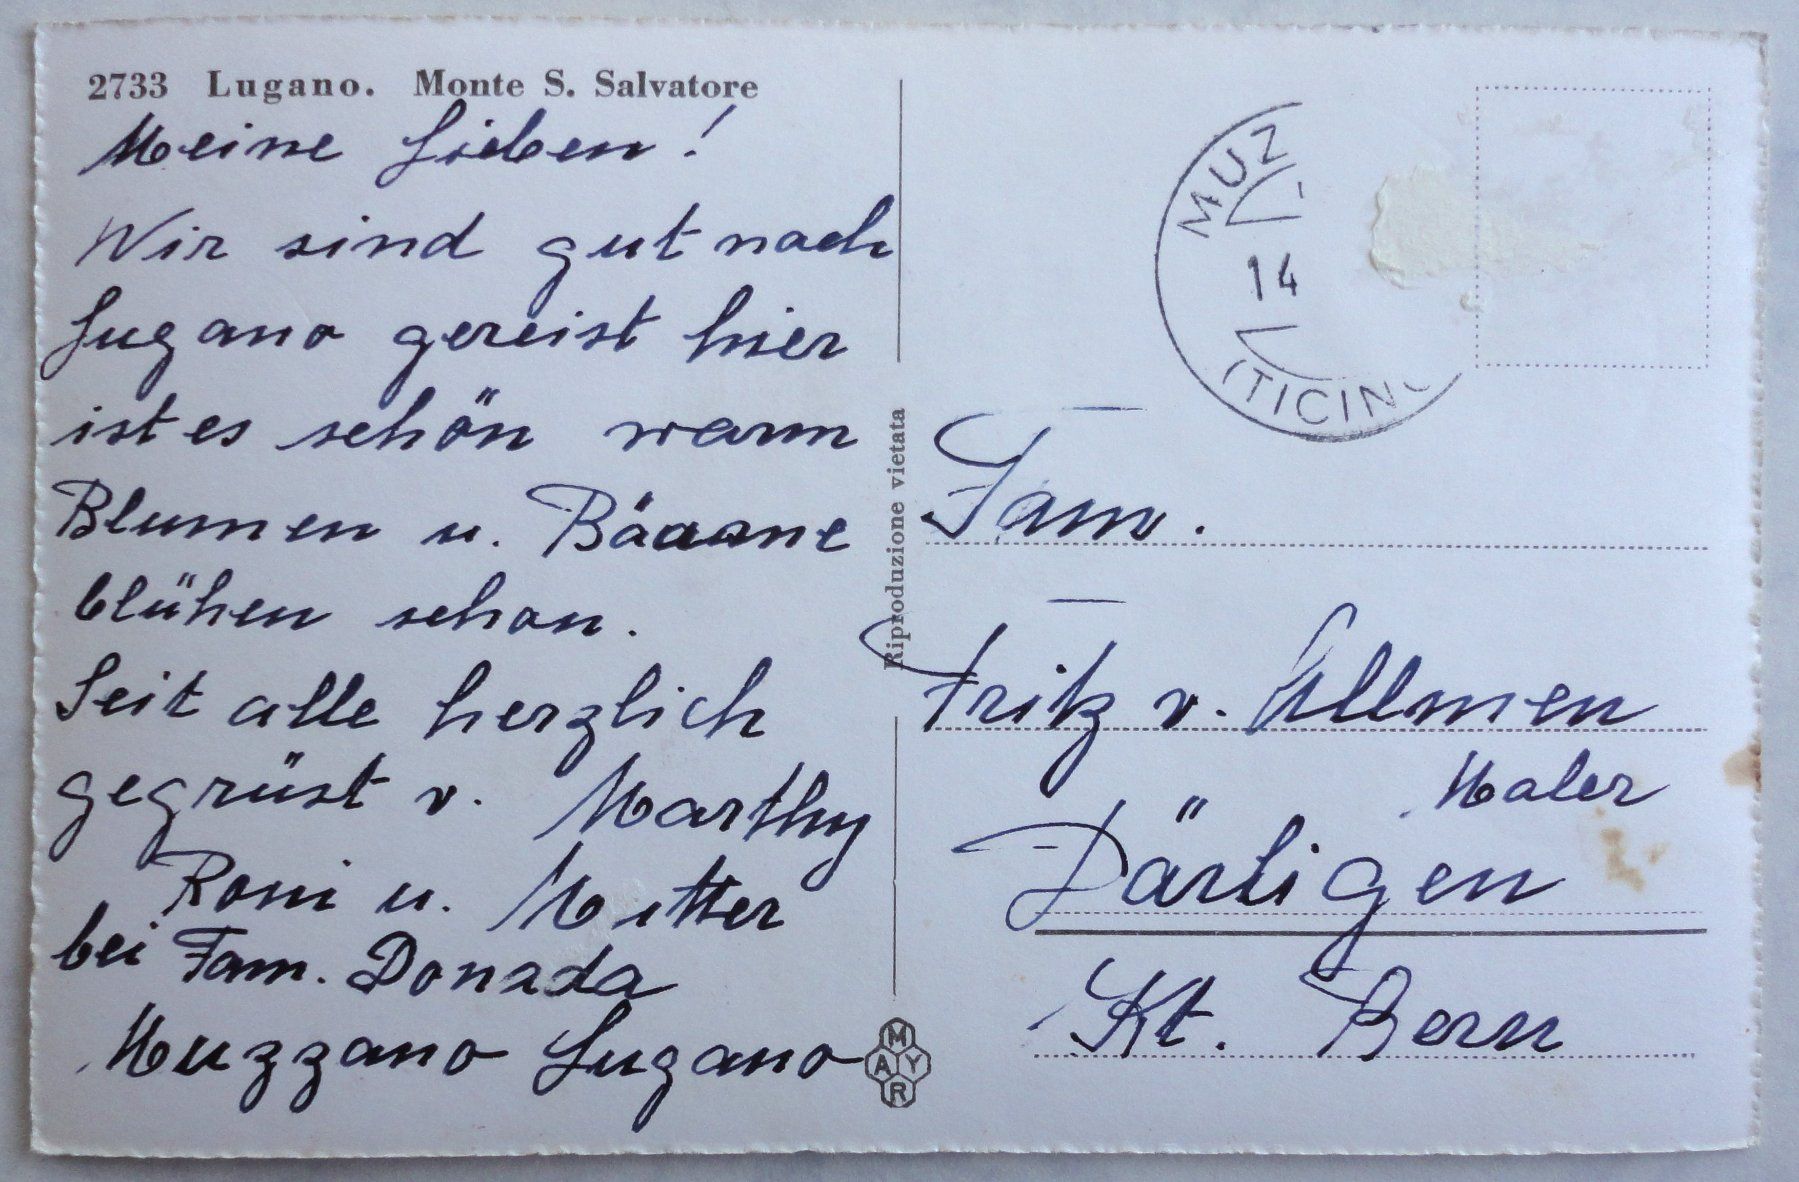 2733 Lugano. Monte S. Salvatore
Meine Lieben!
Wir sind gut nach
Lugano gereist hier
ist es schön warm
Blumen u. Bäume
blühen schon.
Seit alle herzlich
gegrüst v. Marthy
Roni u. Mutter
bei Fam. Donada
Muzzano Lugano
Riproduzione vietata
MAYR
MUZ
14
(TICINO
Fam.
Fritz v. Allmen
Maler
Därligen
Kt. Bern